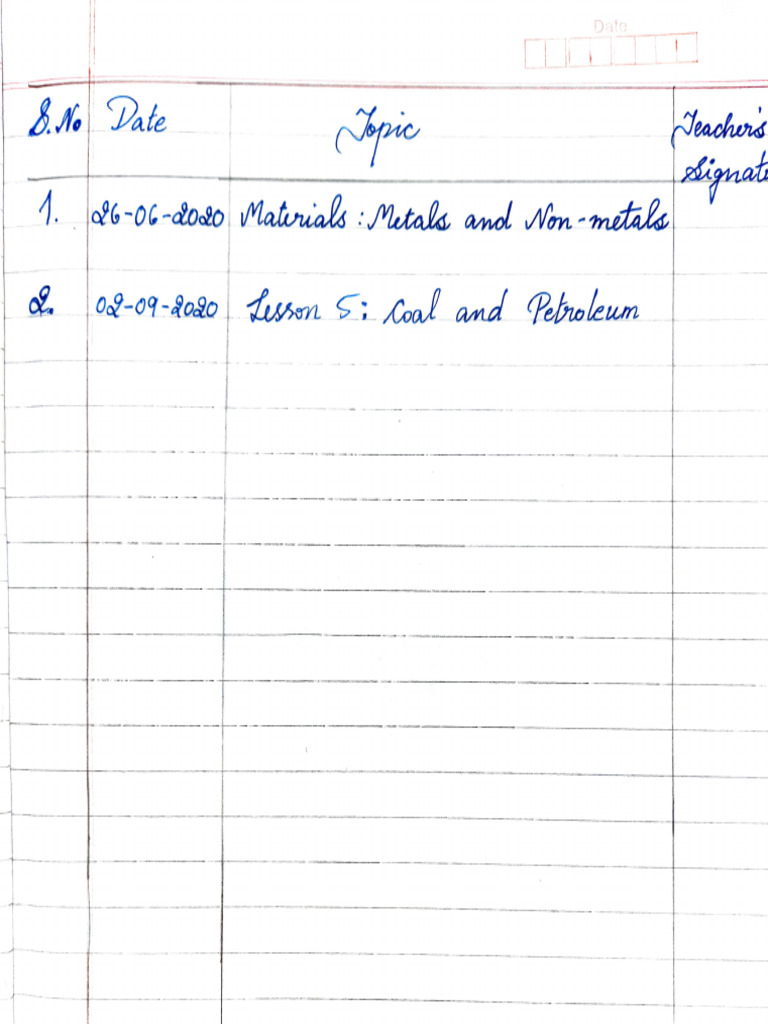 Date
S.No Date Topic Teacher's
Signat
1. 26-06-2020 Materials : Metals and Non-metals
2. 02-09-2020 Lesson 5 : Coal and Petroleum